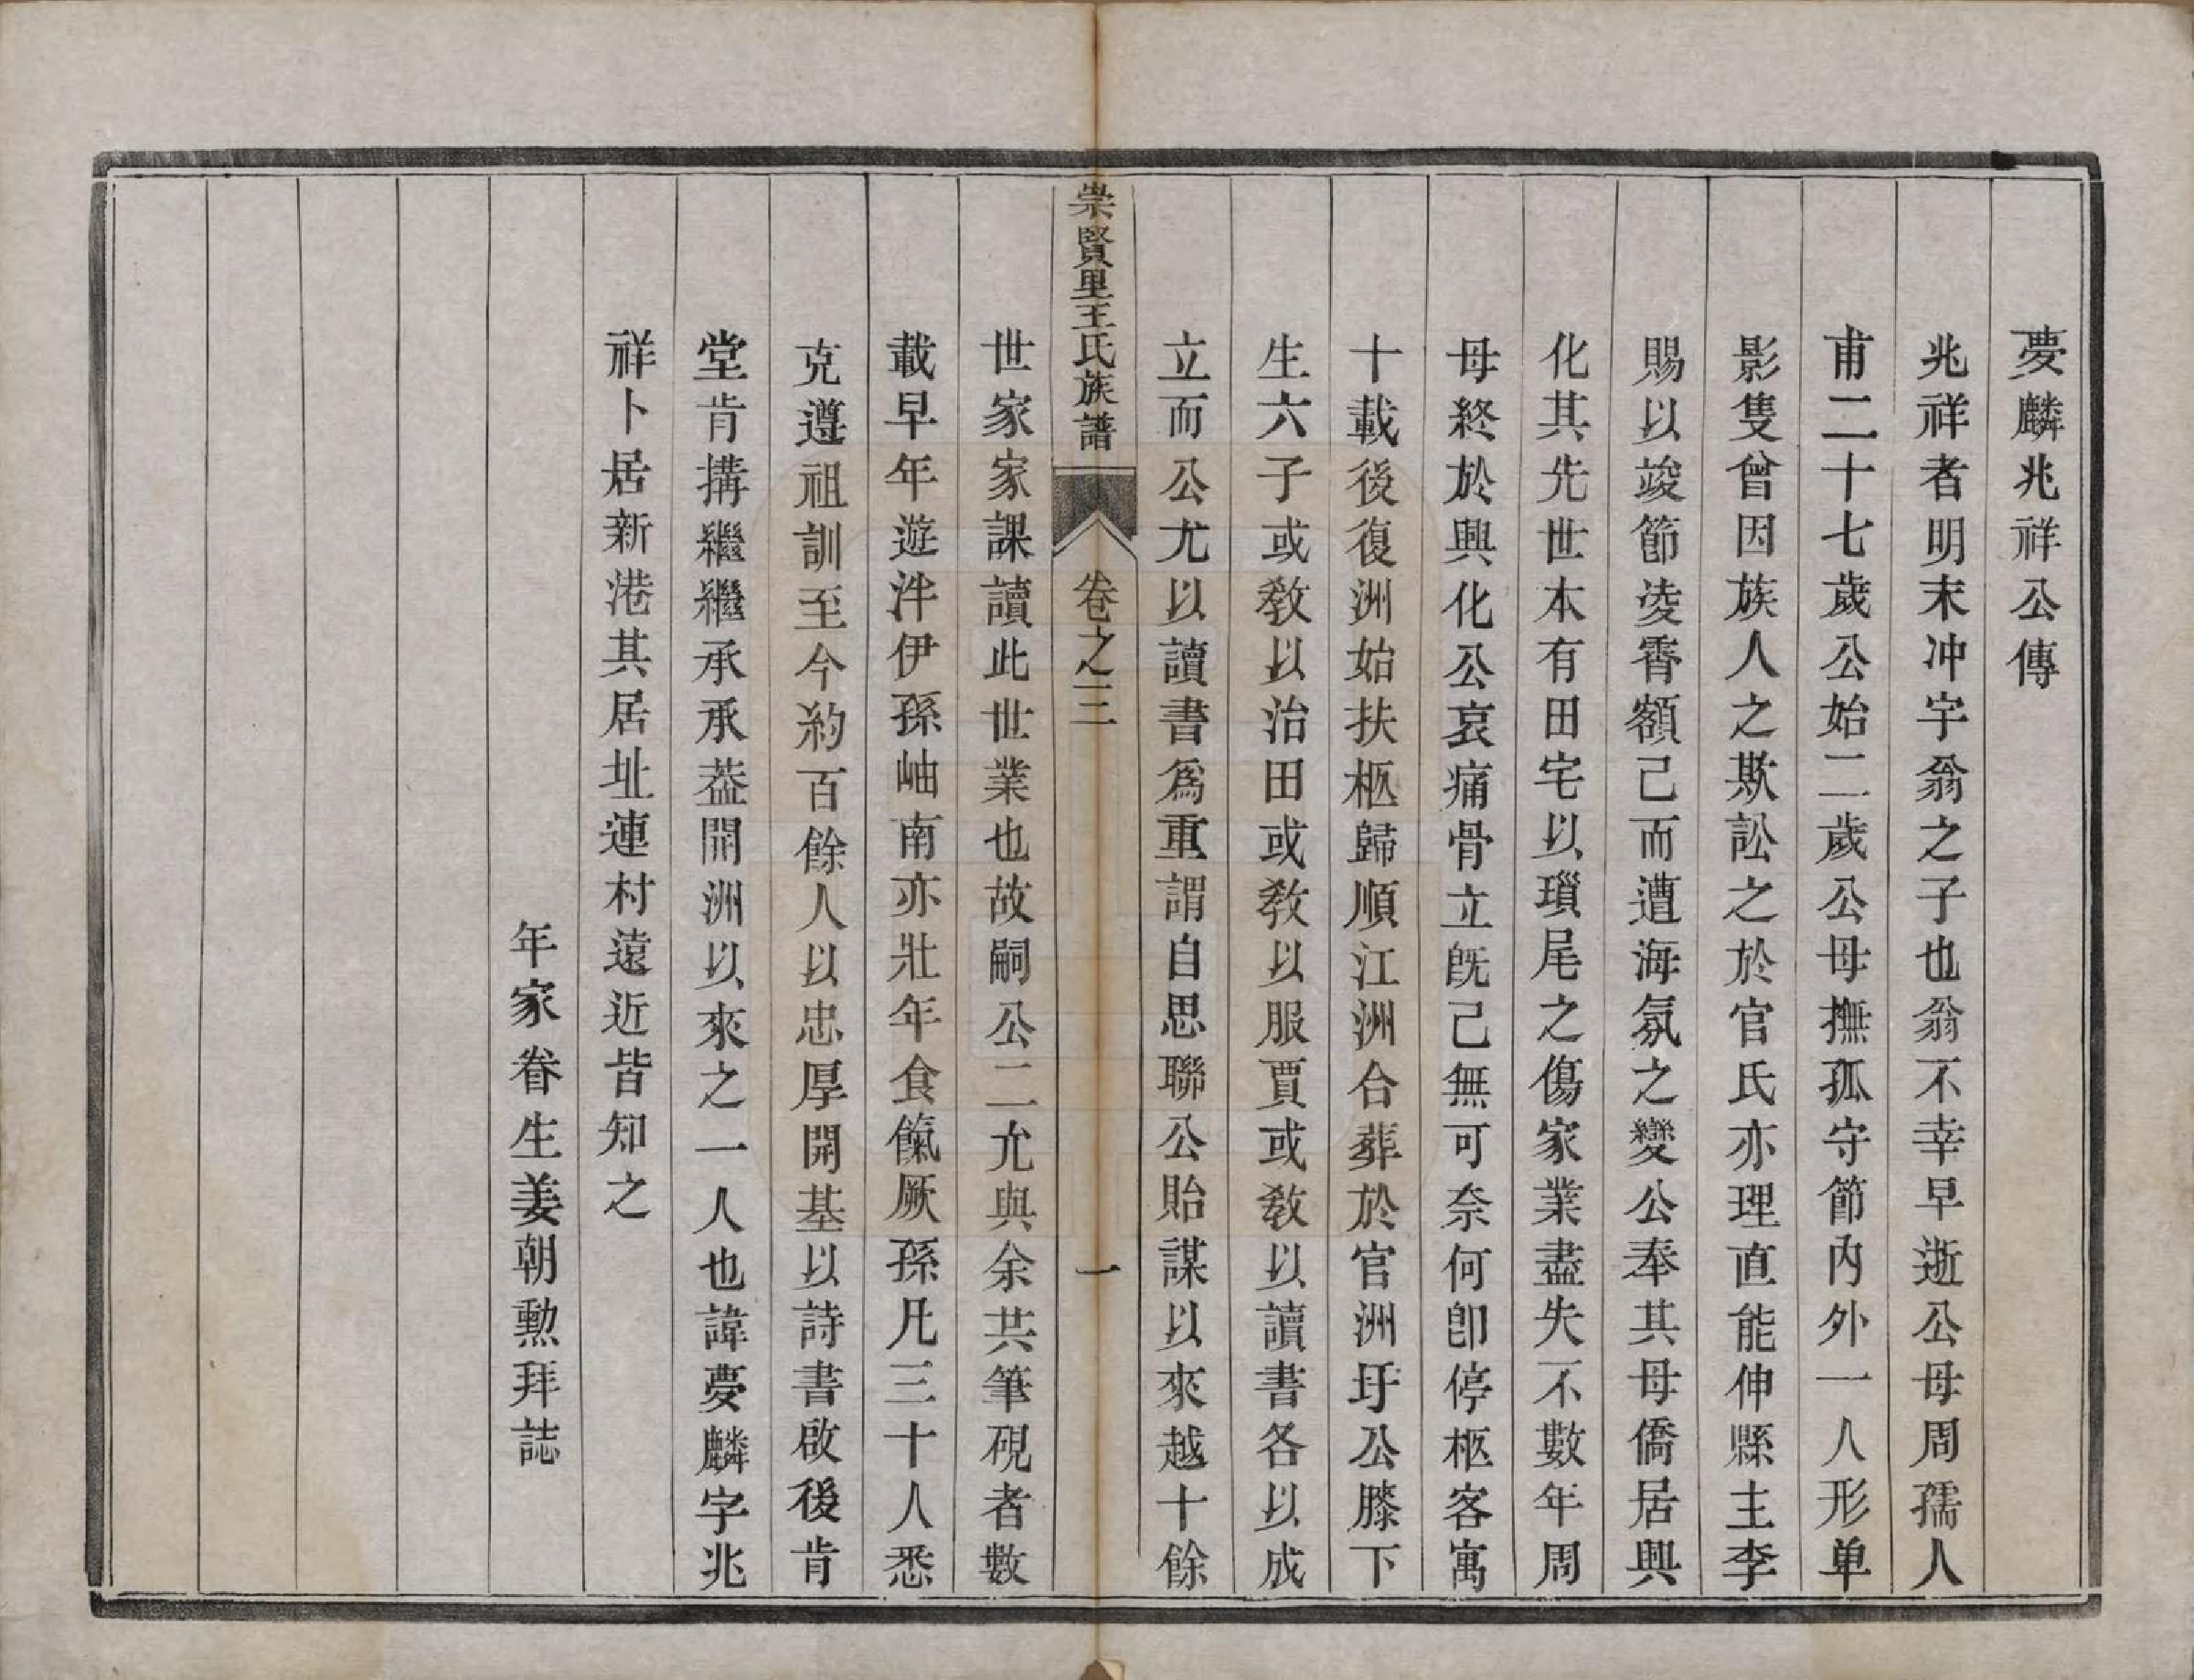 夢麟兆祥公傳
兆祥者明末冲宇翁之子也翁不幸早逝公母周孺人
甫二十七歲公始二歲公母撫孤守節內外一人形单
影隻曾因族人之欺訟之於官氏亦理直能伸縣主李
賜以竣節凌霄額己而遭海氛之變公奉其母僑居興
化其先世本有田宅以瑣尾之傷家業盡失不數年周
母終於興化公哀痛骨立旣己無可奈何卽停柩客寓
十載後復洲始扶柩歸順江洲合葬於官洲圩公膝下
生六子或教以治田或教以服賈或教以讀書各以成
立而公尤以讀書爲重謂自思聯公貽謀以來越十餘
崇賢里王氏族譜
卷之三
一
世家家課讀此世業也故嗣公二允與余共筆硯者數
載早年遊泮伊孫岫南亦壯年食餼厥孫凡三十人悉
克遵祖訓至今約百餘人以忠厚開基以詩書啟後肯
堂肯搆繼繼承承葢開洲以來之一人也諱夢麟字兆
祥卜居新港其居址連村遠近皆知之
年家眷生姜朝勲拜誌